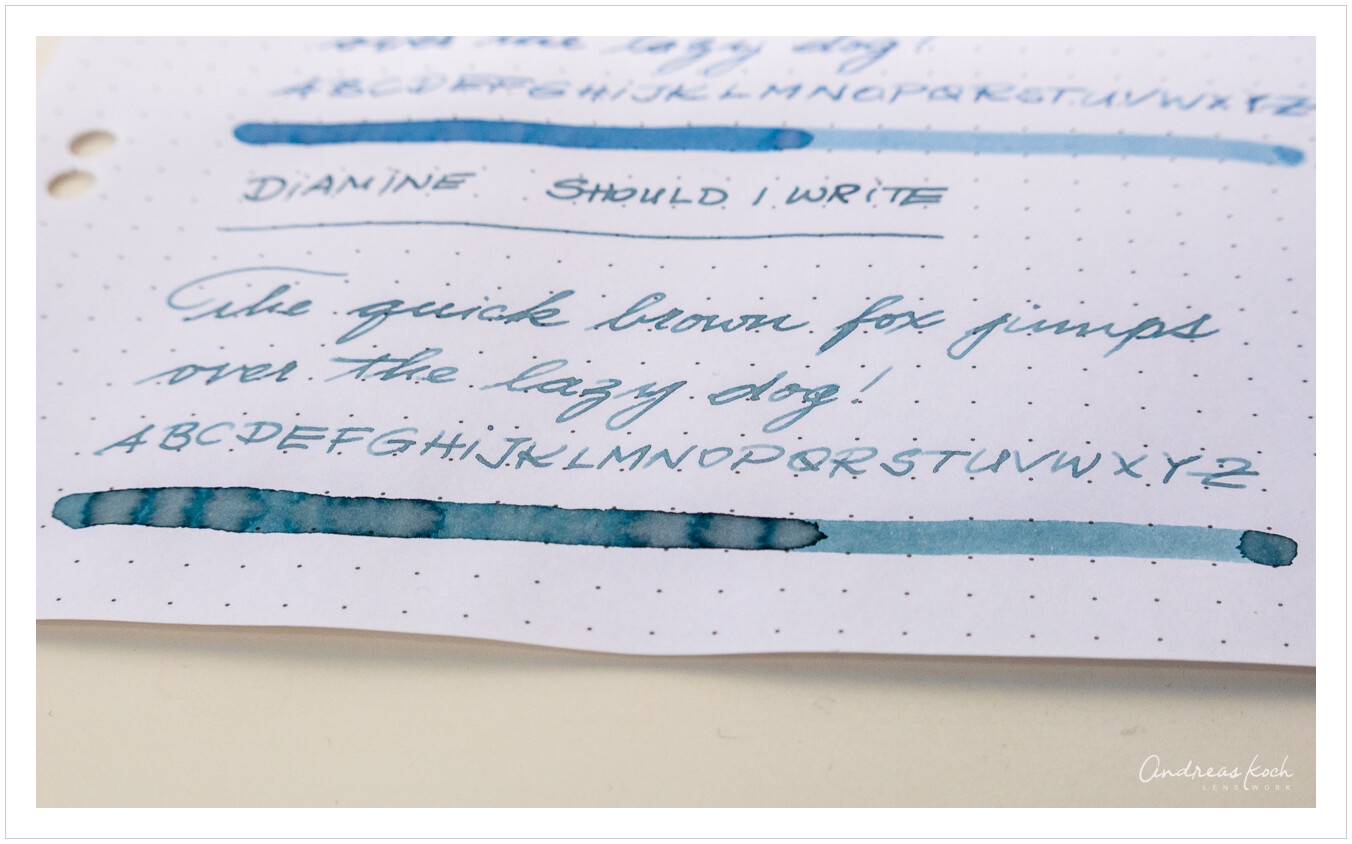 over the lazy dog!
ABCDEFGHiJKLMNOPQRSTUVWXYZ
DiAMiNE SHOULD I WRiTE
The quick brown fox jumps
over the lazy dog!
ABCDEFGHiJKLMNOPQRSTUVWXYZ
Andreas Koch
LENSWORK